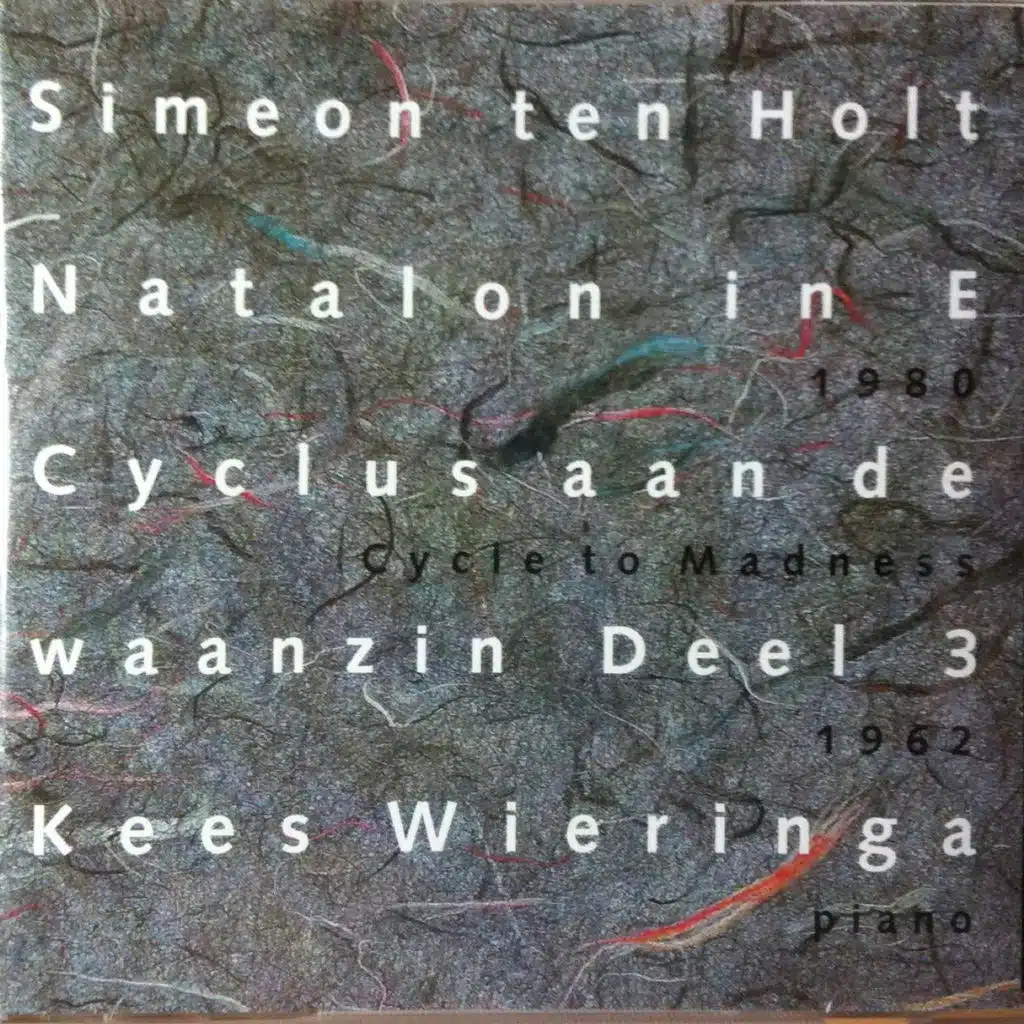 Simeon ten Holt
Natalon in E
1980
Cyclus aan de
Cycle to Madness
waanzin Deel 3
1962
Kees Wieringa
piano